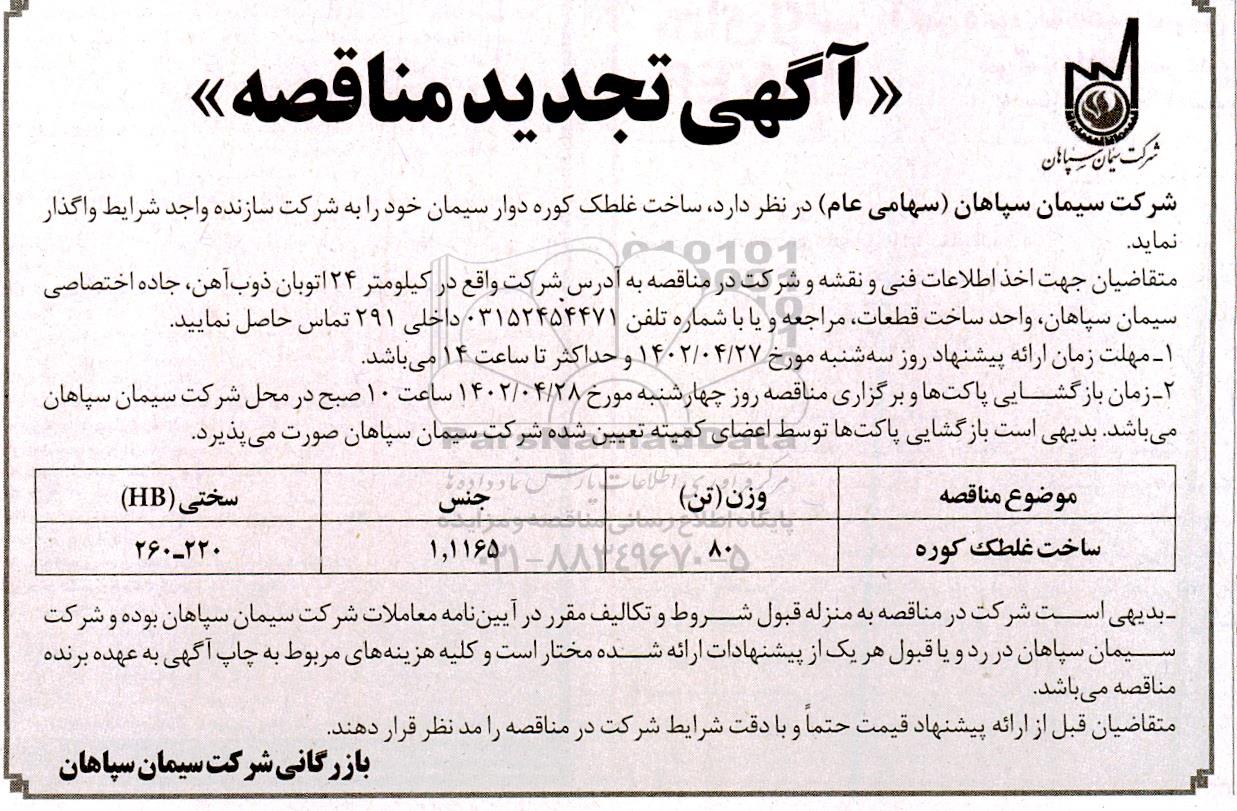 «آگهی تجدید مناقصه»
شرکت سیمان سپاهان
شرکت سیمان سپاهان (سهامی عام) در نظر دارد، ساخت غلطک کوره دوار سیمان خود را به شرکت سازنده واجد شرایط واگذار
نماید.
متقاضیان جهت اخذ اطلاعات فنی و نقشه و شرکت در مناقصه به آدرس شرکت واقع در کیلومتر ۲۴ اتوبان ذوب‌آهن، جاده اختصاصی
سیمان سپاهان، واحد ساخت قطعات، مراجعه و یا با شماره تلفن ۰۳۱۵۲۴۵۴۴۷۱ داخلی ۲۹۱ تماس حاصل نمایید.
۱ـ مهلت زمان ارائه پیشنهاد روز سه‌شنبه مورخ ۱۴۰۲/۰۴/۲۷ و حداکثر تا ساعت ۱۴ می‌باشد.
۲ـ زمان بازگشـــایی پاکت‌ها و برگزاری مناقصه روز چهارشنبه مورخ ۱۴۰۲/۰۴/۲۸ ساعت ۱۰ صبح در محل شرکت سیمان سپاهان
می‌باشد. بدیهی است بازگشایی پاکت‌ها توسط اعضای کمیته تعیین شده شرکت سیمان سپاهان صورت می‌پذیرد.
ParsNamadData
مرکز فرآوری اطلاعات پارس نماد داده‌ها
پایگاه اطلاع رسانی مناقصه و مزایده
۰۲۱-۸۸۳۴۹۶۷۰-۵
موضوع مناقصه وزن (تن) جنس سختی (HB)
ساخت غلطک کوره ۸۰ ۱,۱۱۶۵ ۲۲۰ـ۲۶۰
ـ بدیهی اســـت شرکت در مناقصه به منزله قبول شـــروط و تکالیف مقرر در آیین‌نامه معاملات شرکت سیمان سپاهان بوده و شرکت
ســـیمان سپاهان در رد و یا قبول هر یک از پیشنهادات ارائه شـــده مختار است و کلیه هزینه‌های مربوط به چاپ آگهی به عهده برنده
مناقصه می‌باشد.
متقاضیان قبل از ارائه پیشنهاد قیمت حتماً و با دقت شرایط شرکت در مناقصه را مد نظر قرار دهند.
بازرگانی شرکت سیمان سپاهان